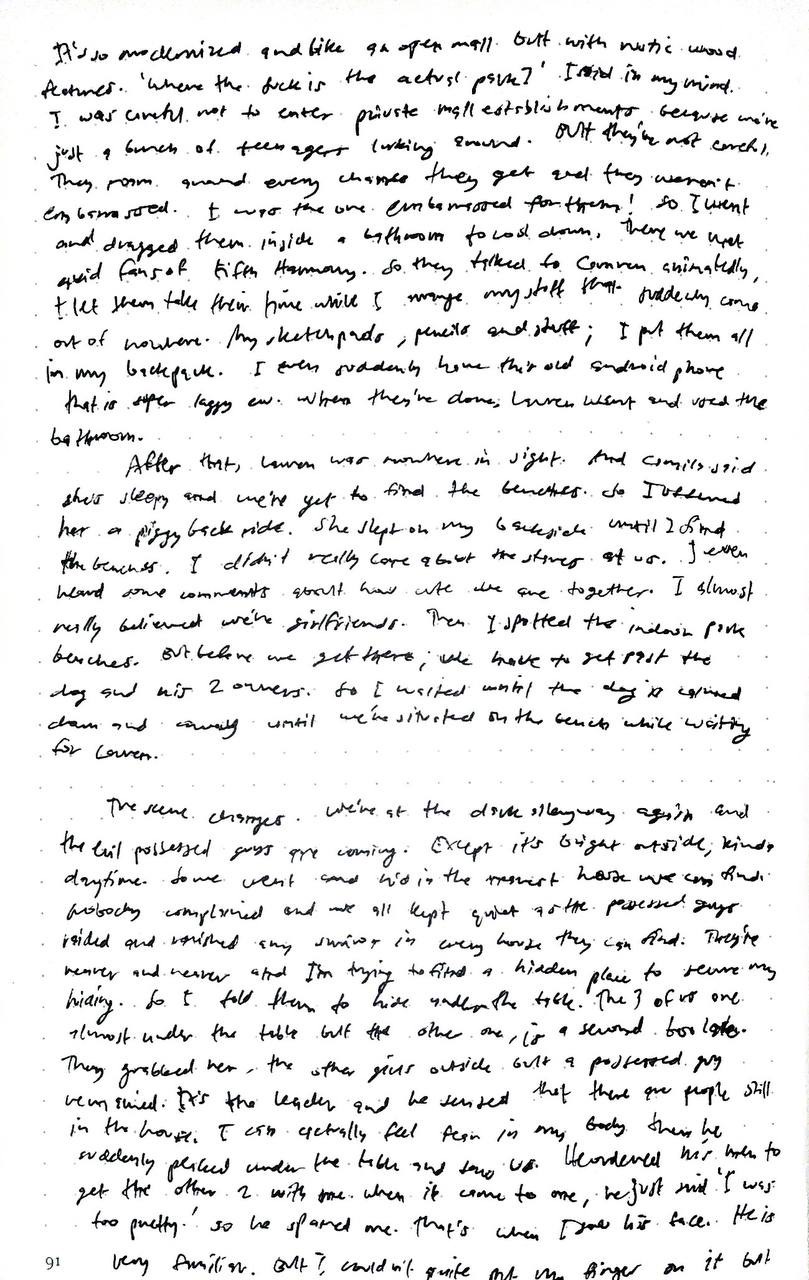 It's so modernized and like an open mall but with rustic wood
features. 'Where the fuck is the actual park?' I said in my mind.
I was careful not to enter private mall establishments because we're
just a bunch of teenagers lurking around. But they're not careful.
They roam around every chance they get and they weren't
embarrassed. I was the one embarrassed for them! So I went
and dragged them inside a bathroom to cool down. There we met
avid fans of Fifth Harmony. So they talked to Lauren animatedly,
I let them take their time while I arrange my stuff that suddenly came
out of nowhere. My sketchpads, pencils and stuff; I put them all
in my backpack. I even suddenly have this old android phone
that is super laggy ew. When they're done, Lauren went and used the
bathroom.
After that, Lauren was nowhere in sight. And Camila said
she's sleepy and we've yet to find the benches. So I offered
her a piggy back ride. She slept on my backside until I find
the benches. I didn't really care about the stares at us. I even
heard some comments about how cute we are together. I almost
really believed we're girlfriends. Then I spotted the indoor park
benches. But before we get there, we have to get past the
dog and his 2 owners. So I waited until the dog is calmed
down and until we're situated on the bench while waiting
for Lauren.
The scene changes. We're at the dark alleyway again and
the evil possessed guys are coming. Except it's bright outside, kinda
daytime. So we went and hid in the nearest house we can find.
Nobody complained and we all kept quiet as the possessed guys
raided and vanished any survivor in every house they can find. They're
nearer and nearer and I'm trying to find a hidden place to secure my
hiding. So I told them to hide under the table. The 3 of us are
almost under the table but the other one, is a second too late.
They grabbed her, the other girls outside but a possessed guy
remained. It's the leader and he sensed that there are people still
in the house. I can actually feel fear in my body then he
suddenly peaked under the table and saw us. He ordered his men to
get the other 2 with me. When it came to me, he just said 'I was
too pretty.' so he spared me. That's when I saw his face. He is
very familiar. But I couldn't quite put my finger on it but
91